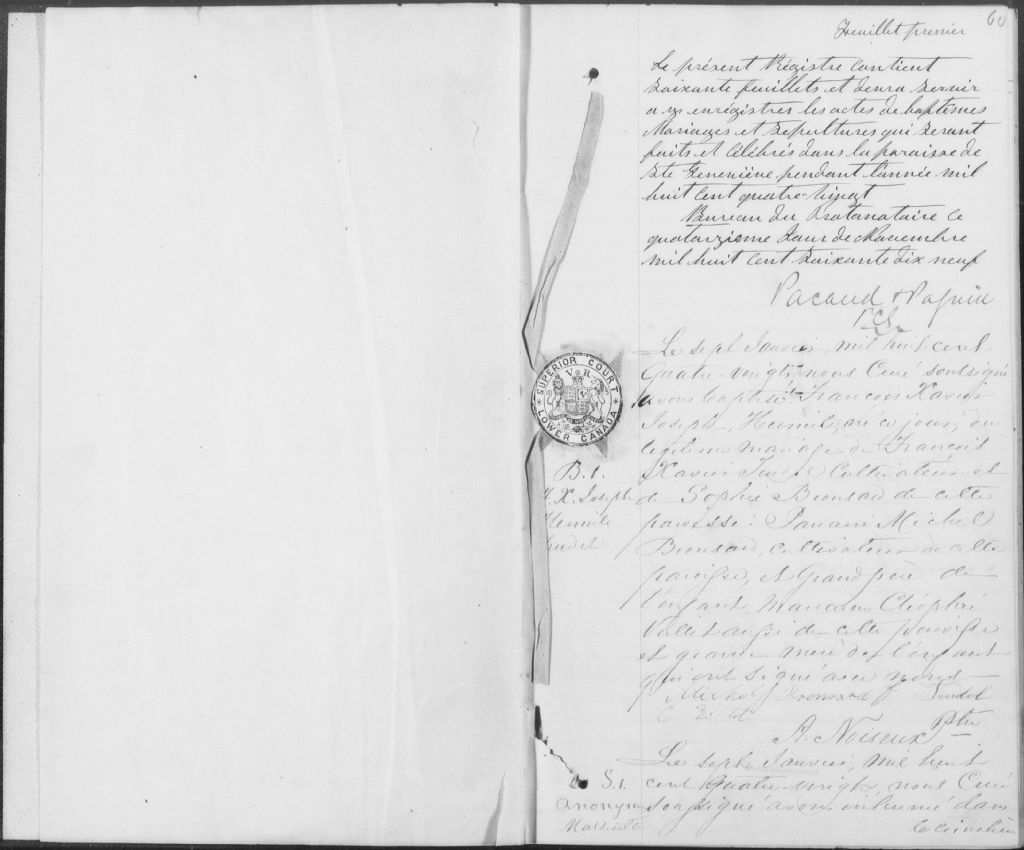 60
Feuillet premier
Le présent Régistre contient
soixante feuillets et devra servir
a y enrégistrer les actes de baptêmes
Mariages et Sepultures qui seront
faits et célébrés dans la paroisse de
Ste Geneviève pendant l'année mil
huit cent quatre-vingt
Bureau du Protonotaire ce
quatorzieme Jour de Novembre
mil huit cent soixante dix neuf
Pacaud & Paquin
P.C.S.
SUPERIOR COURT
V R
LOWER CANADA
B.1.
F. X. Joseph
Hermile
Trudel
Le sept Janvier, mil huit cent
Quatre-vingt, nous Curé soussigné
avons baptisé François Xavier
Joseph, Hermile, né ce jour, du
légitime mariage de François
Xavier Trudel Cultivateur et
de Sophie Bronsard de cette
paroisse: Parrain Michel
Bronsard, cultivateur de cette
paroisse, et Grand père de
l'enfant, Marraine Cléophé
Veillet aussi de cette paroisse
et grand mère de l'enfant
qui ont signé avec nous
Michel Bronsard Trudel
C Veillet
A. Noiseux Ptre
S.1.
Anonyme
Le sept Janvier, mil huit
cent Quatre-vingt, nous Curé
soussigné avons inhumé dans
le cimetière